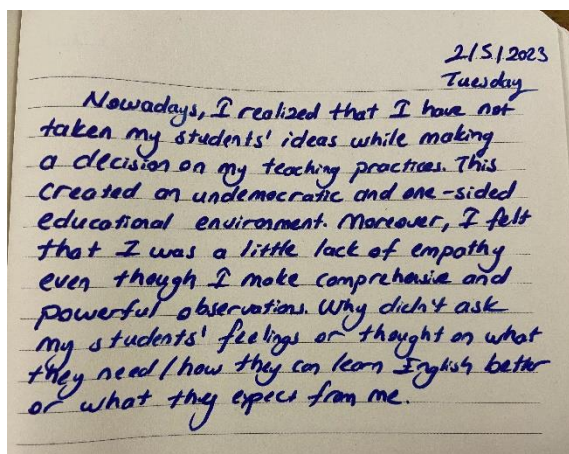 2/5/2023
Tuesday
Nowadays, I realized that I have not
taken my students' ideas while making
a decision on my teaching practices. This
created an undemocratic and one-sided
educational environment. Moreover, I felt
that I was a little lack of empathy
even though I make comprehensive and
powerful observations. Why didn't ask
my students' feelings or thought on what
they need / how they can learn English better
or what they expect from me.